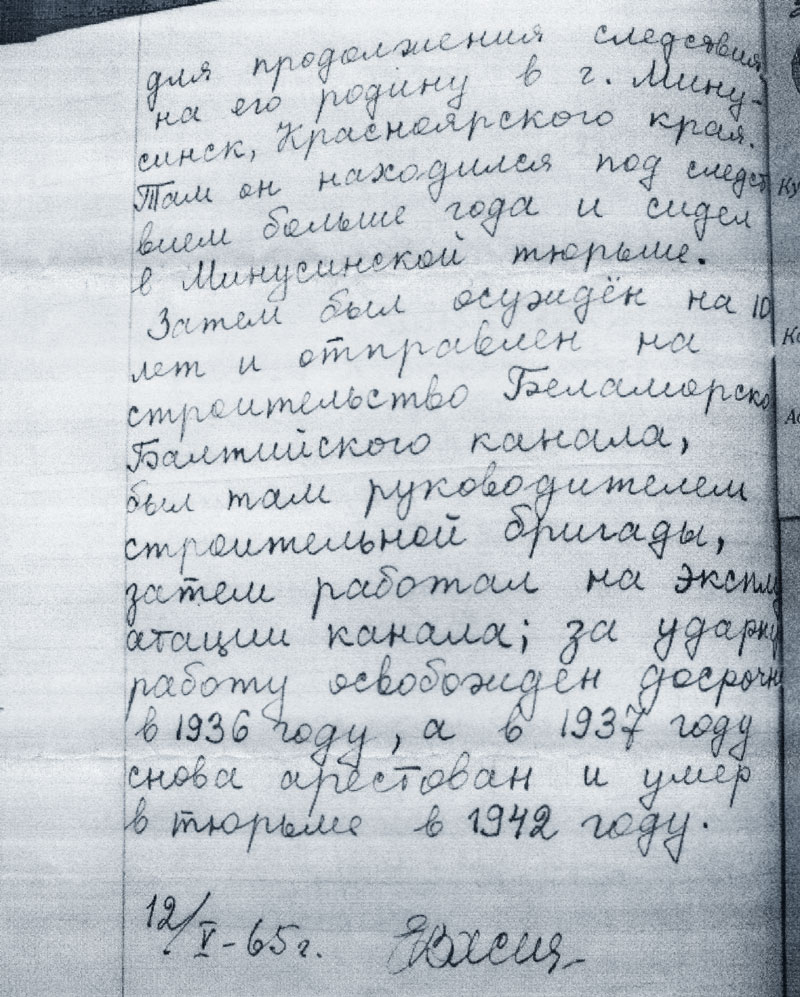 для продолжения следствия
на его родину в г. Мину-
синск, Красноярского края.
Там он находился под следст
вием больше года и сидел
в Минусинской тюрьме.
Затем был осуждён на 10
лет и отправлен на
строительство Беламорско
Балтийского канала,
был там руководителем
строительной бригады,
затем работал на эксплу
атации канала; за ударну
работу освобожден досрочн
в 1936 году, а в 1937 году
снова арестован и умер
в тюрьме в 1942 году.
12/V-65г.
Ку
Ко